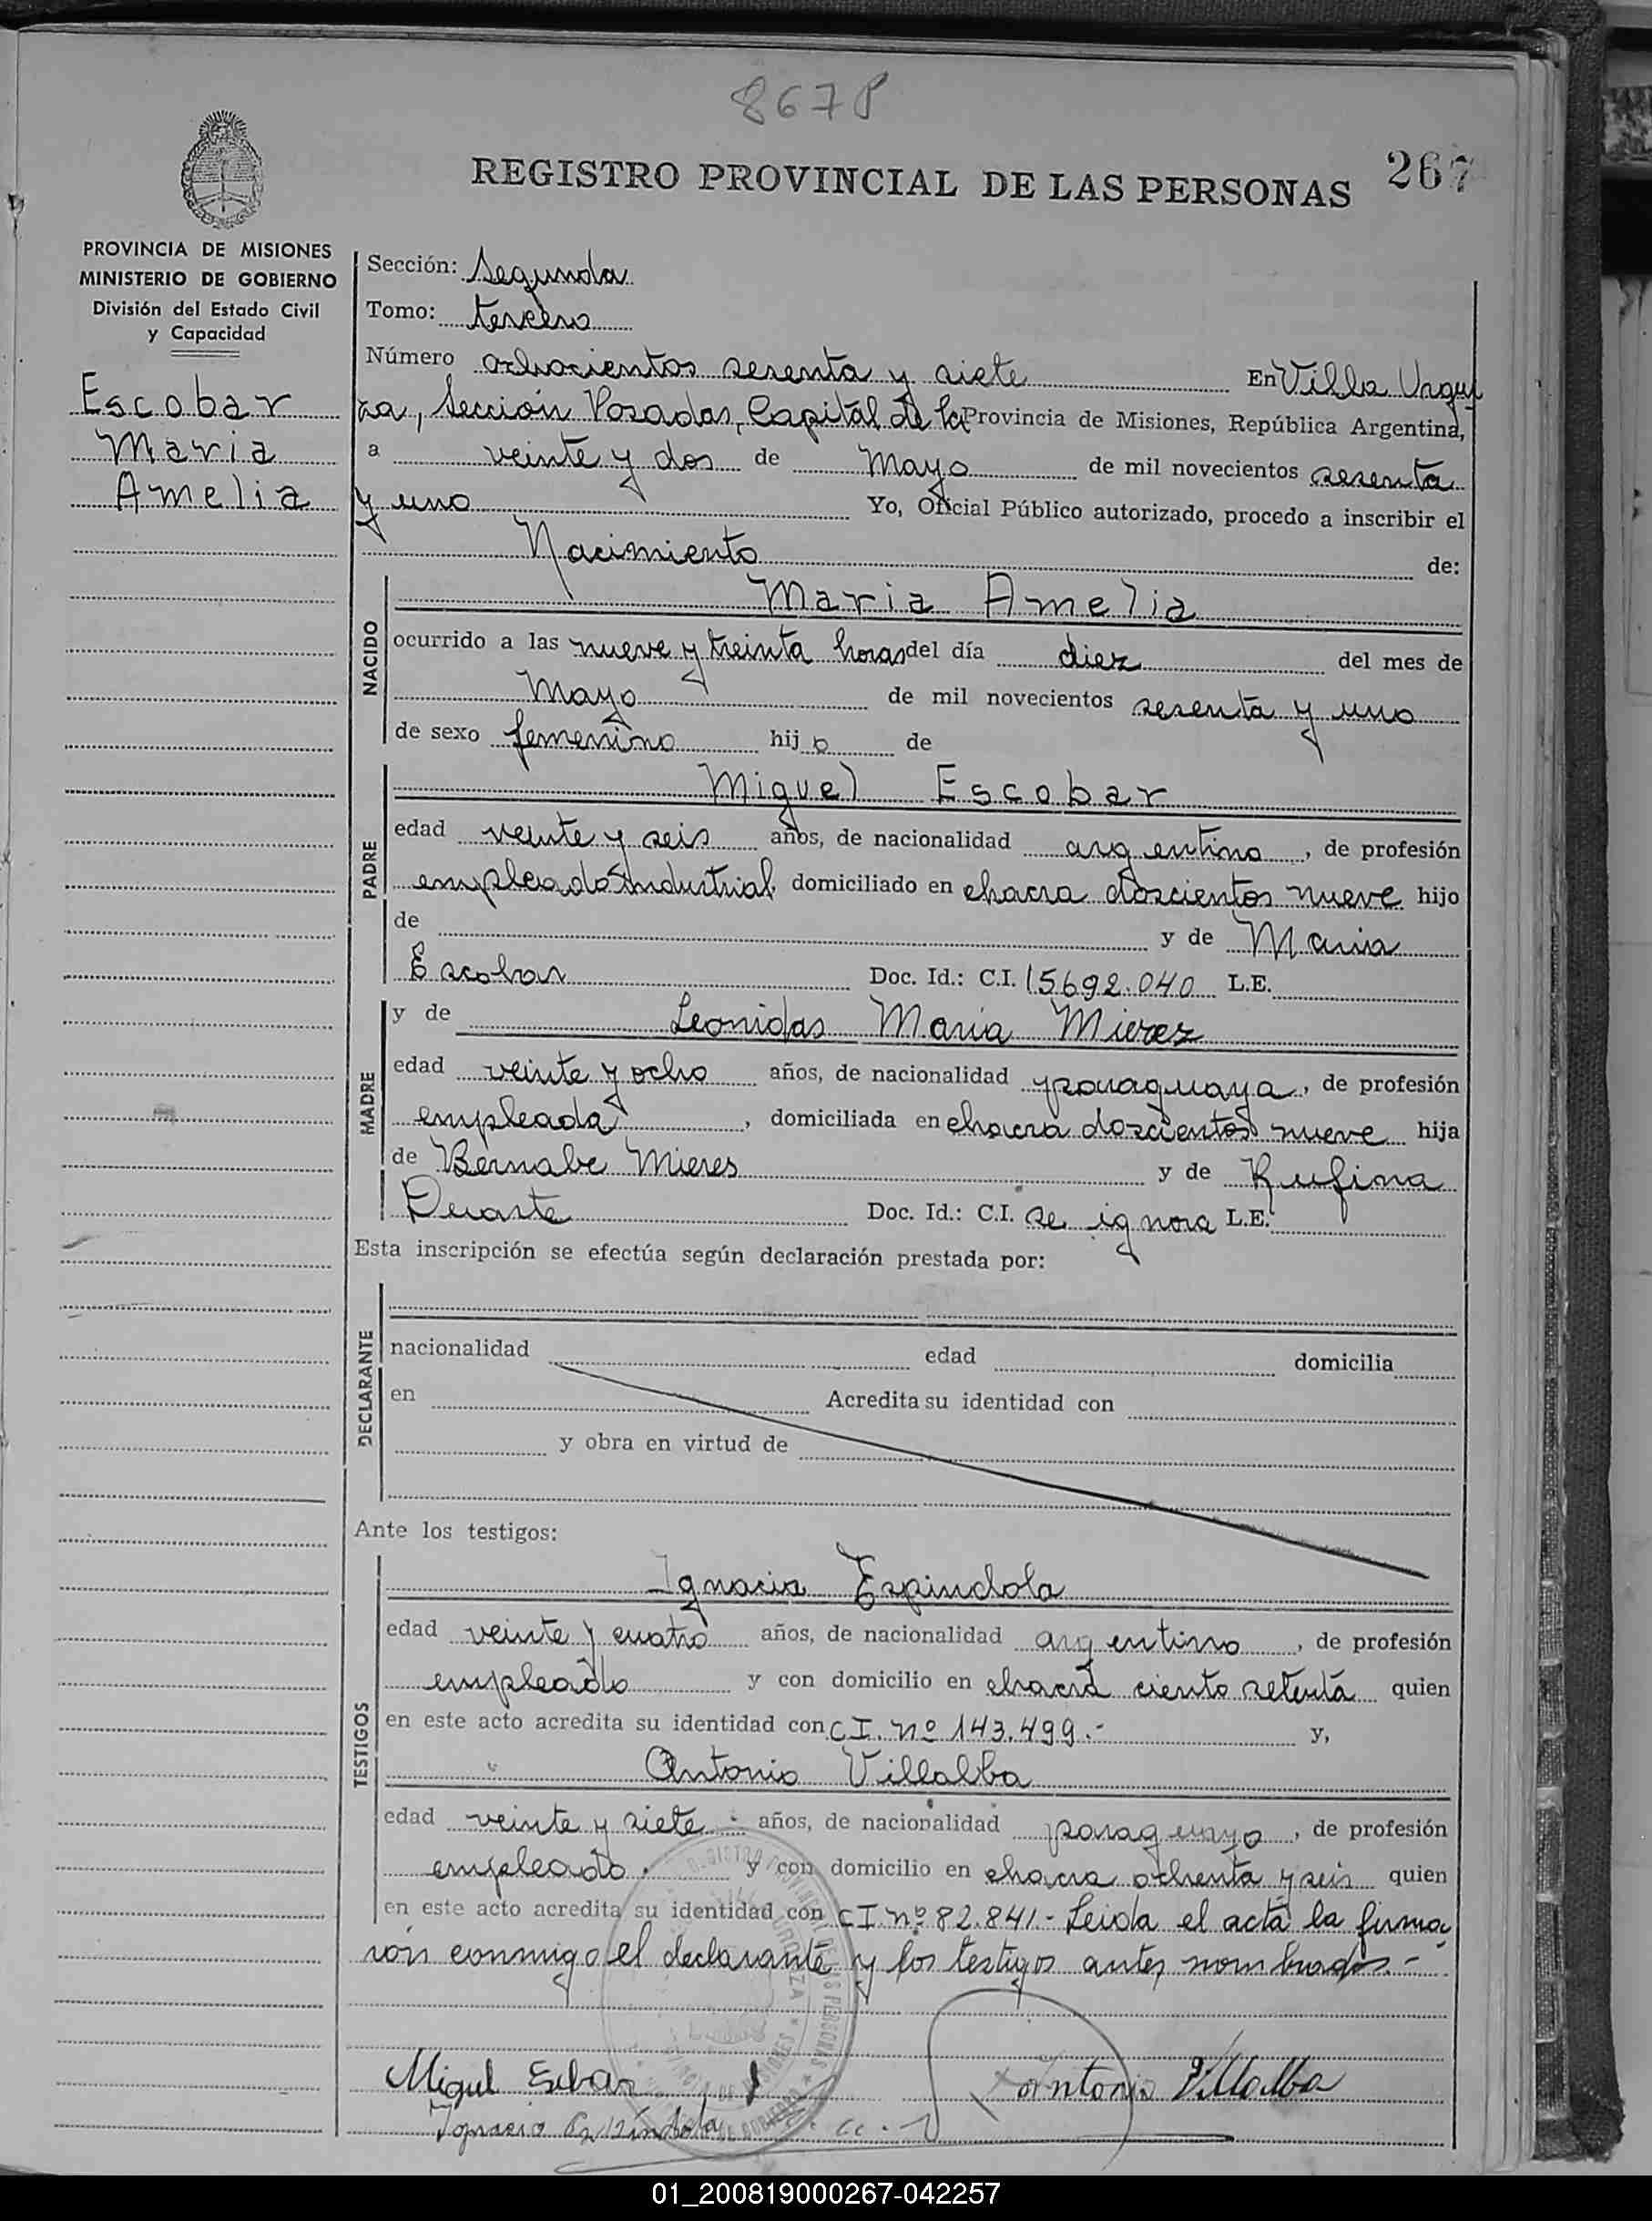 867P
REGISTRO PROVINCIAL DE LAS PERSONAS 267
PROVINCIA DE MISIONES
MINISTERIO DE GOBIERNO
División del Estado Civil
y Capacidad
Escobar
Maria
Amelia
Sección: Segunda
Tomo: tercero
Número ochocientos sesenta y siete En Villa Urqui
za, Sección Posadas, Capital de la Provincia de Misiones, República Argentina,
a veinte y dos de Mayo de mil novecientos sesenta
y uno Yo, Oficial Público autorizado, procedo a inscribir el
Nacimiento de:
NACIDO
Maria Amelia
ocurrido a las nueve y treinta horas del día diez del mes de
Mayo de mil novecientos sesenta y uno
de sexo femenino hijo de
PADRE
Miguel Escobar
edad veinte y seis años, de nacionalidad argentino, de profesión
empleado Industrial domiciliado en chacra doscientos nueve hijo
de y de Maria
Escobar Doc. Id.: C.I. 15692.040 L.E.
MADRE
y de Leonidas Maria Mierez
edad veinte y ocho años, de nacionalidad paraguaya, de profesión
empleada, domiciliada en chacra doscientos nueve hija
de Bernabe Mieres y de Rufina
Duarte Doc. Id.: C.I. se ignora L.E.
Esta inscripción se efectúa según declaración prestada por:
DECLARANTE
nacionalidad edad domicilia
en Acredita su identidad con
y obra en virtud de
Ante los testigos:
TESTIGOS
Ignacio Espindola
edad veinte y cuatro años, de nacionalidad argentino, de profesión
empleado y con domicilio en chacra ciento setenta quien
en este acto acredita su identidad con C I. nº 143.499.- y,
Antonio Villalba
edad veinte y siete años, de nacionalidad paraguayo, de profesión
empleado. y con domicilio en chacra ochenta y seis quien
en este acto acredita su identidad con C I nº 82.841.- Leida el acta la firma
ron conmigo el declarante y los testigos antes nombrados.-
Miguel Escobar Antonio Villalba
Ignacio Espindola
01_200819000267-042257